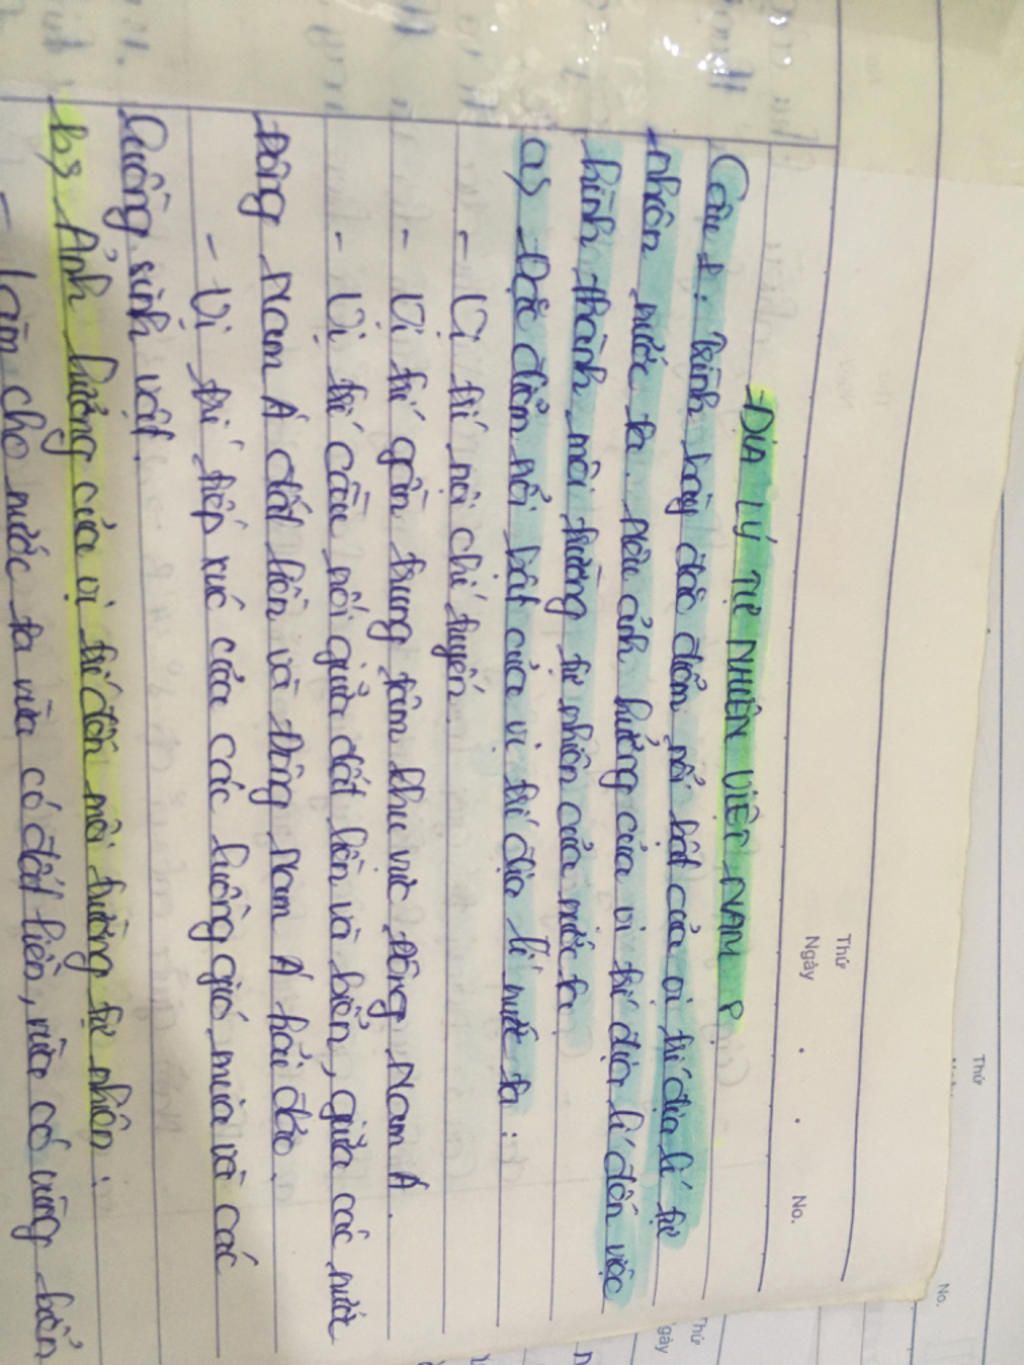 Thứ
Ngày
No.
ĐỊA LÝ TỰ NHIÊN VIỆT NAM
Câu 1: Trình bày đặc điểm nổi bật của vị trí địa lí tự
nhiên nước ta. Nêu ảnh hưởng của vị trí địa lí đến việc
hình thành môi trường tự nhiên của nước ta
a) Đặc điểm nổi bật của vị trí địa lí nước ta:
- Vị trí nội chí tuyến.
- Vị trí gần trung tâm khu vực Đông Nam Á.
- Vị trí cầu nối giữa đất liền và biển, giữa các nước
Đông Nam Á đất liền và Đông Nam Á hải đảo.
- Vị trí tiếp xúc của các luồng gió mùa và các
luồng sinh vật.
b) Ảnh hưởng của vị trí đến môi trường tự nhiên:
- Làm cho nước ta vừa có đất liền, vừa có vùng biển
Thứ
No.
Thứ
gày